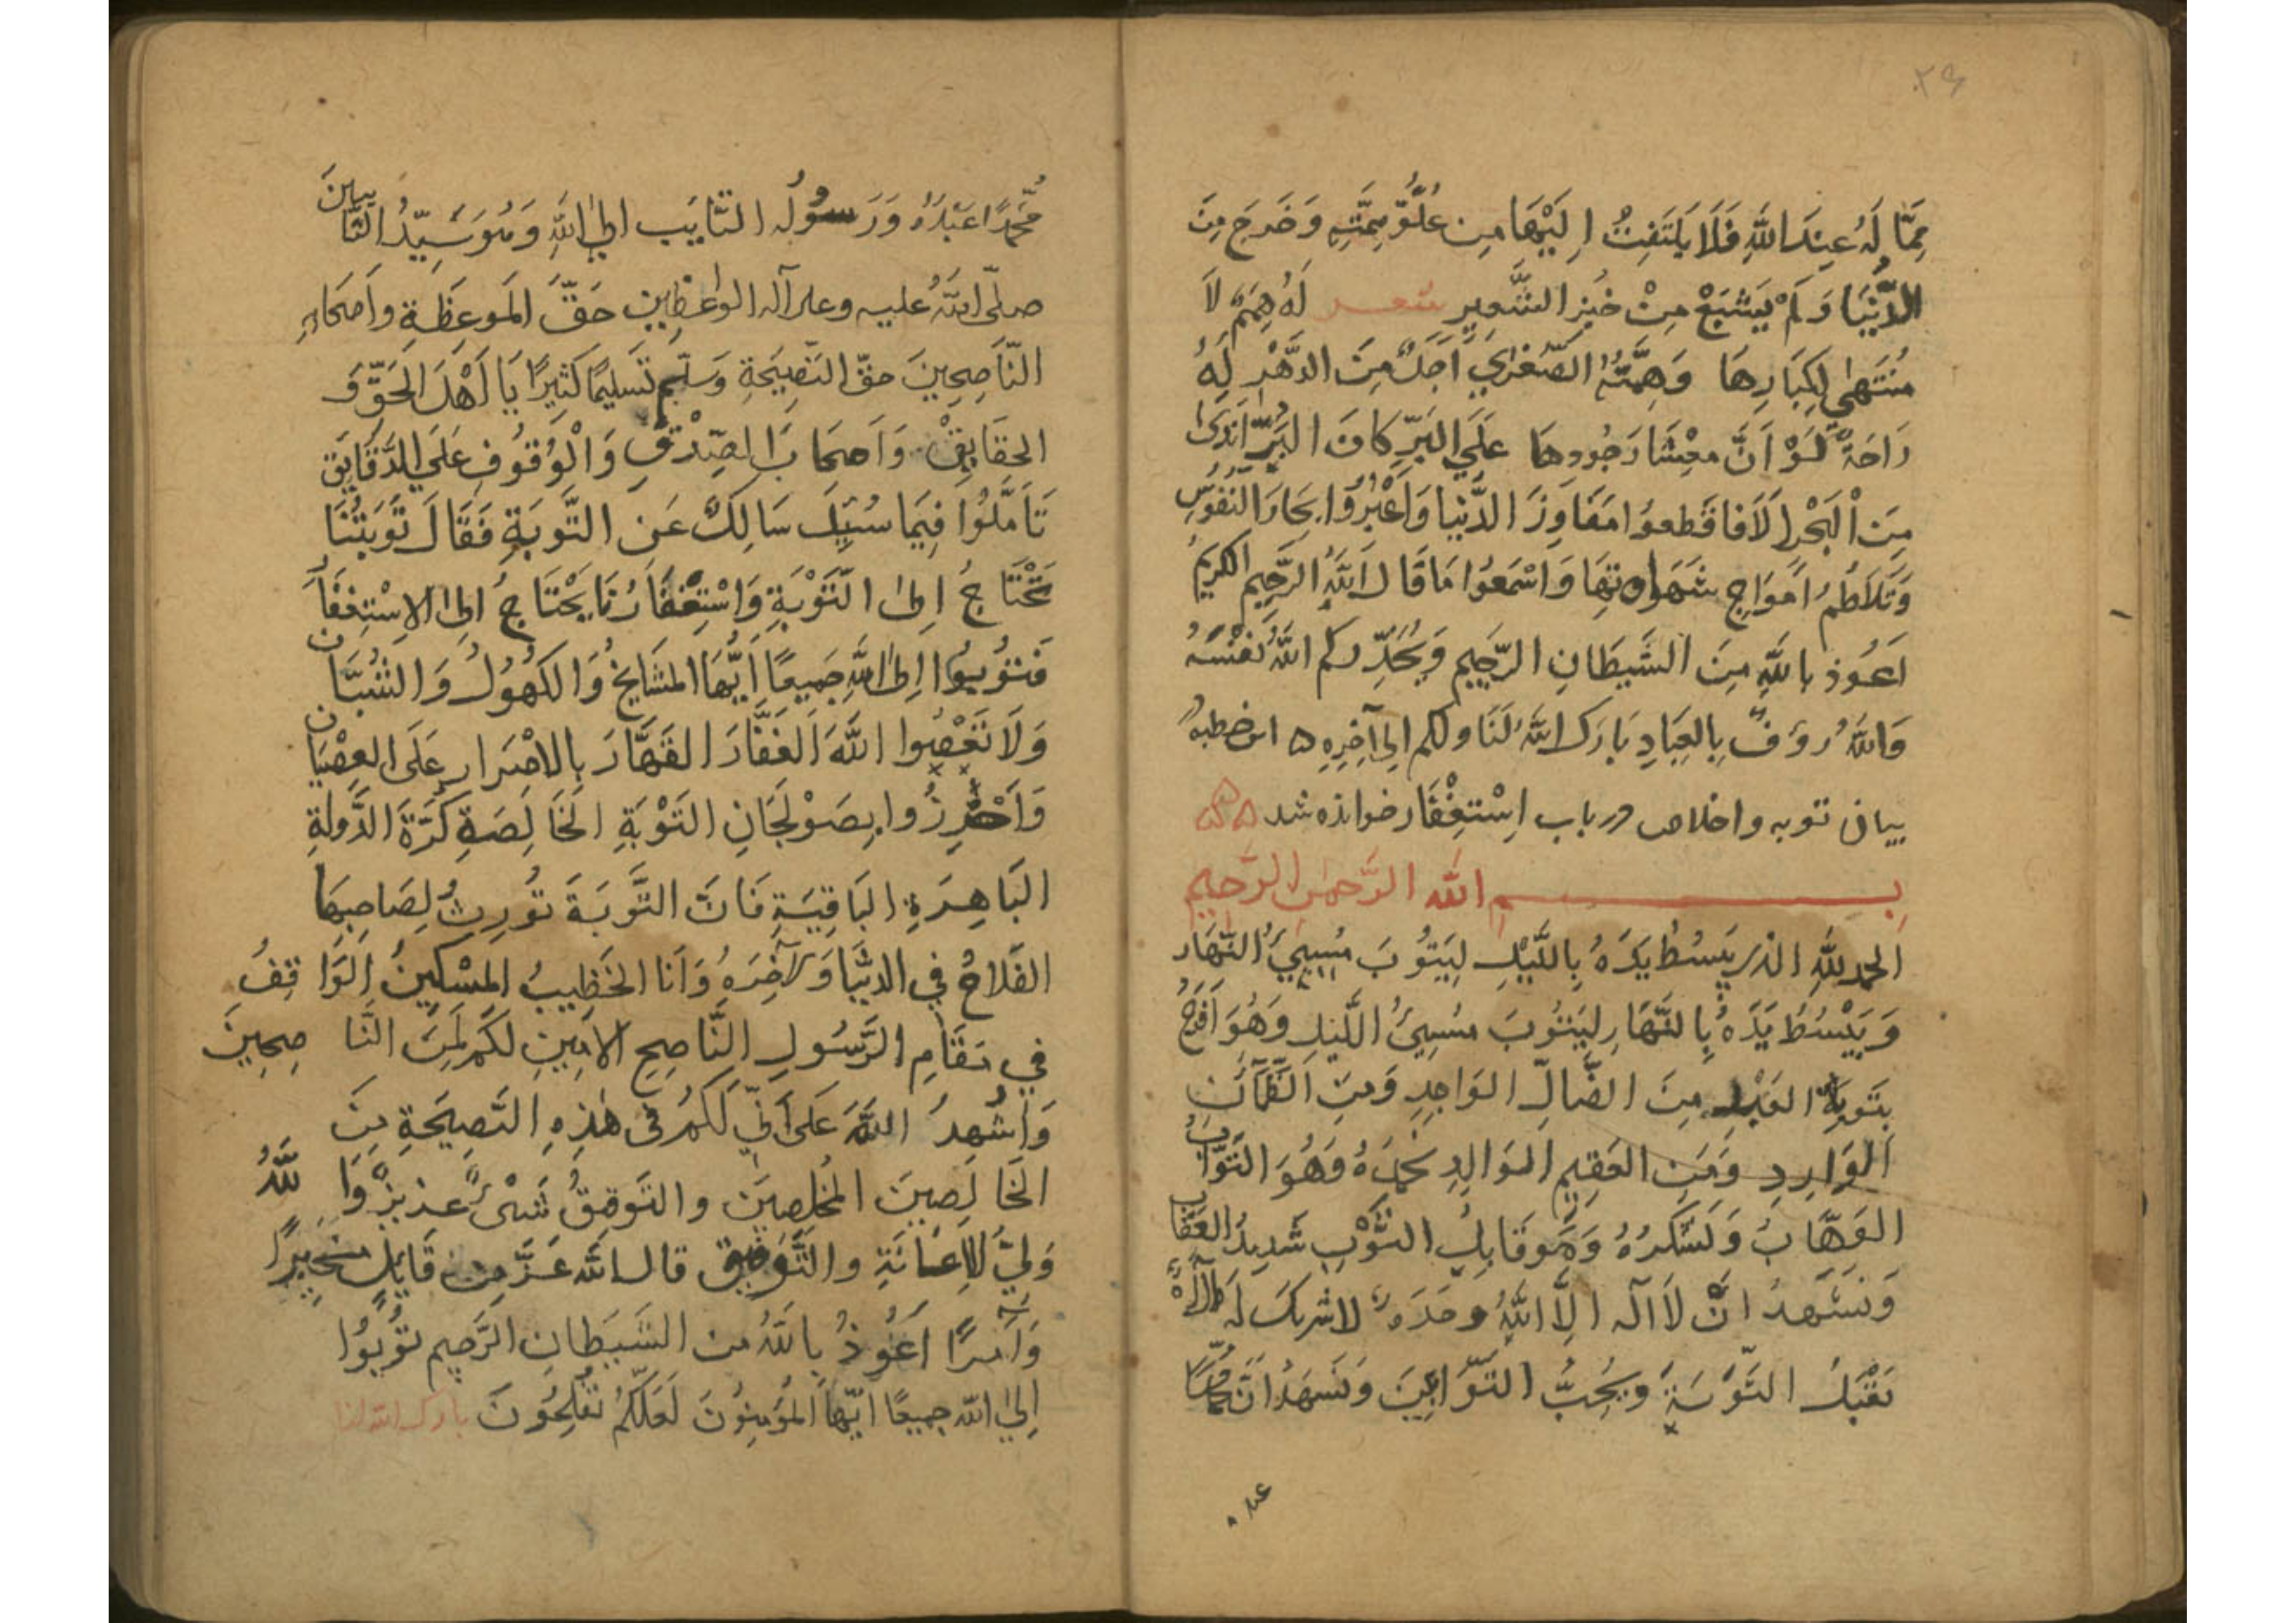 ٢٤
مِمَّا لَهُ عِنْدَ اللَّهِ فَلَا يَلْتَفِتُ اِلَيْهَا مِن عُلُوِّ هِمَّتِهِ وَخَرَجَ مِنَ
الدُّنْيَا وَلَمْ يَشْبَعْ مِنْ خُبزِ الشَّعِيرِ شعر لَهُ هِمَمٌ لَا
مُنْتَهٰى لِكِبَارِهَا وَهِمَّتُهُ الصُّغْرٰى اَجَلُّ مِنَ الدَّهْرِ لَهُ
رَاحَةٌ لَوْ اَنَّ مِعْشَارَ جُودِهَا عَلَى البَرِّ كَانَ البَرُّ اَنْدٰى
مِنَ الْبَحْرِ اَلَا فَاقْطَعُوا مَفَاوِزَ الدُّنْيَا وَاعْبُرُوا بِحَارَ النُّفُوسِ
وَتَلَاطُمَ اَمْوَاجِ شَهَواتِهَا وَاسْمَعُوا مَا قَالَ اللَّهُ الرَّحِيمُ الكَرِيمُ
اَعُوذ بِاللَّهِ مِنَ الشَّيطَانِ الرَّجِيمِ وَيُحَذِّرُكُم اللَّهُ نَفْسَهُ
وَاللَّهُ رَؤُفٌ بِالعِبَادِ بَارَكَ اللَّهُ لَنَا وَلَكُم اِلى آخِرِهِ اين خطبه
بيان توبه واخلاص در باب اِسْتِغْفَار خوانده شد
بسم الله الرَّحمٰن الرَّحِيم
الحمد للَّهِ الذى يَبْسُطُ يَدَهُ بِاللَّيْلِ لِيَتُوبَ مُسِيئُ النَّهَار
وَيَبْسُطُ يَدَهُ بِالنَّهَارِ لِيَتُوبَ مُسِيئُ اللَّيلِ وَهُوَ اَفْرَحُ
بِتَوبَةِ العَبْدِ مِنَ الضَّالِّ الوَاجِدِ وَمِنَ الظَّمْآنِ
الوَارِدِ وَمِنَ العَقِيمِ الوَالِدِ نَحْمَدُهُ وَهُوَ التَّوَّابُ
الوَهَّابُ وَنَشْكُرُهُ وَهُوَ قَابِلُ التَّوْبِ شَدِيدُ العِقَابِ
وَنَشْهَدُ اَنْ لَا اِلَهَ اِلَّا اللَّهُ وَحْدَهُ لَا شَرِيكَ لَهُ
يَقْبَلُ التَّوْبَةَ وَيُحِبُّ التَّوَّابِينَ وَنَشْهَدُ اَنَّ مُحَمَّدًا
مُحَمَّدًا عَبْدُهُ وَرَسُولُه التَّايِب اِلى اللَّهِ وَهُوَ سَيِّدُ التَّايِبِينَ
صلّى اللَّهُ عليه وعلى آله الواعظِين حَقَّ المَوعِظَةِ وَاَصحَابِهِ
النَّاصِحِينَ حقَّ النَّصِيحَةِ وَسَلَّم تَسلِيمًا كَثِيرًا يَا اَهْلَ الحَقِّ وَ
الحَقَايِقِ وَاَصحَابَ الصِّدْقِ وَالْوُقُوفِ عَلَى الدَّقَايِق
تَأَمَّلُوا فِيمَا سُئِلَ سَالِكٌ عَنِ التَّوبَةِ فَقَالَ تَوبَتُنَا
تَحْتَاجُ اِلى التَّوْبَةِ وَاسْتِغْفَارُنَا يَحْتَاجُ اِلى الاِسْتِغْفَارِ
فَتُوبُوا اِلى اللَّهِ جَمِيعًا اَيُّهَا المَشَايِخُ وَالكُهُولُ وَالشُّبَّان
وَلَا تَعْصُوا اللَّهَ الغَفَّارَ القَهَّارَ بِالاصْرَارِ عَلَى العِصْيَان
وَاَحْرِزُوا بِصَوْلَجَانِ التَوْبَةِ الخَالِصَةِ كُرَةَ الدَّولَةِ
البَاهِرَةِ البَاقِيَةِ فَاِنَّ التَّوبَةَ تُورِثُ لِصَاحِبِهَا
الفَلَاحَ فِي الدُّنْيَا وَالآخِرَهِ وَاَنَا الخَطِيبُ المِسْكِينُ الوَاقِفُ
فِي مَقَامِ الرَّسُولِ النَّاصِحِ الاَمِينِ لَكُم لَمِنَ النَّاصِحِينَ
وَاُشْهِدُ اللَّهَ عَلَى اَنِّي لَكُمْ فى هٰذِهِ النَّصِيحَةِ مِنَ
الخَالِصِينَ المُخْلِصِين والتَّوفِيقُ شَىْءٌ عَزِيزٌ وَاللَّهُ
وَلِيُّ الاِعَانَةِ والتَّوفِيق قال اللَّه عَزَّ مِن قَايِلٍ مُخْبِرًا
وَآمِرًا اَعُوذُ بِاللَّهِ من الشَّيطَانِ الرَّجِيمِ تُوبُوا
اِلى اللَّه جمِيعًا اَيُّهَا المُؤْمِنُونَ لَعَلَّكُمْ تُفْلِحُونَ بارك الله لنا